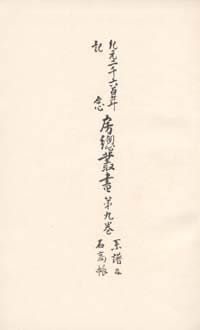 紀元二千六百年
記念
房總叢書 第九巻
系譜及
石高帳